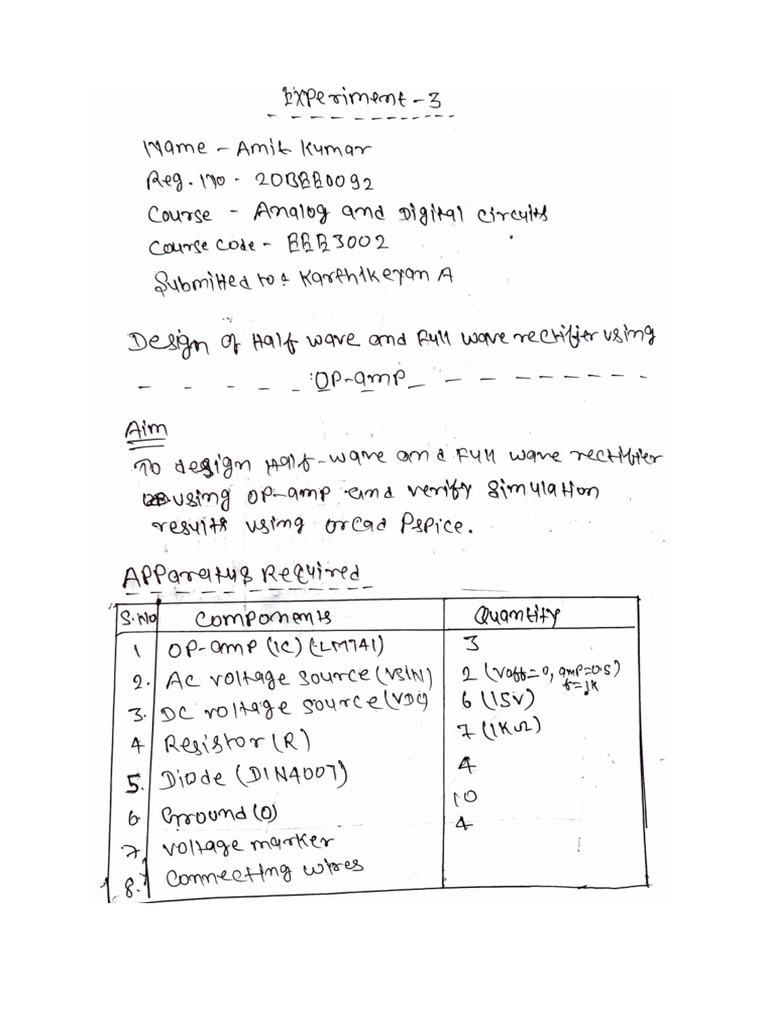 Experiment - 3
Name - Amit Kumar
Reg. No - 20BEE0092
Course - Analog and Digital Circuits
Course Code - EEE3002
Submitted to : Karthikeyan A
Design of Half wave and Full wave rectifier using
OP-amp
Aim
To design Half-wave and Full wave rectifier
using OP-amp and verify simulation
results using Orcad Pspice.
Apparatus Required
S.No Components Quantity
1 OP-amp (IC) (LM741) 3
2. AC voltage source (VSIN) 2 (Voff=0, amp=0.5)
f=1K
3. DC voltage source (VDC) 6 (15V)
4 Resistor (R) 7 (1KΩ)
5. Diode (D1N4007) 4
6 Ground (0) 10
7. Voltage marker 4
8. Connecting wires